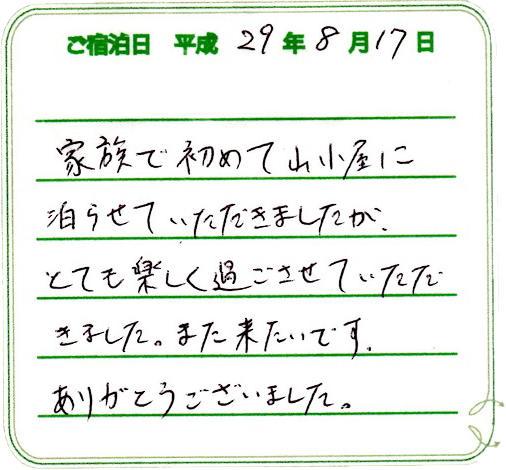 ご宿泊日 平成 29 年 8 月 17 日
家族で初めて山小屋に
泊らせていただきましたが、
とても楽しく過ごさせていただ
きました。また来たいです。
ありがとうございました。